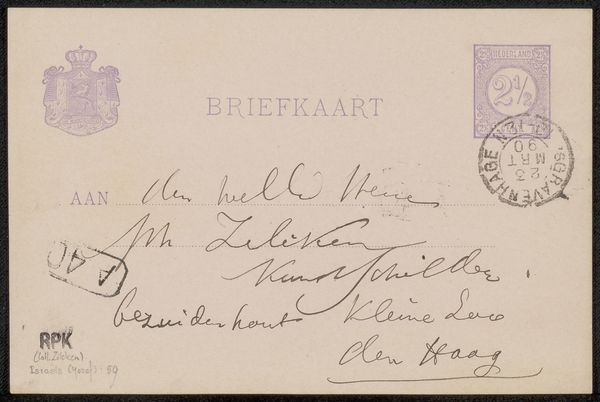 BRIEFKAART
NEDERLAND
2½
'SGRAVENHAGE
23
MRT
90
AAN den welEd Heer
Ph Zilcken
Kunstschilder
bezuidenhout Kleine Loo
den Haag
A 40
RPK
(coll. Zilcken)
Israels (Jozef): 59